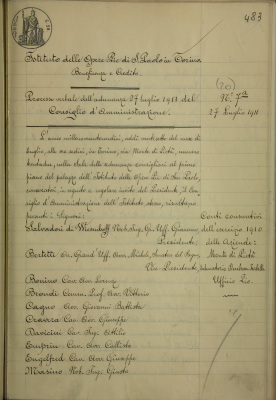 483
Istituto delle Opere Pie di S. Paolo in Torino
Beneficenza e Credito.
(20)
Processo verbale dell'adunanza 27 luglio 1911 del
N.° 7
Consiglio d'Amministrazione.
27 Luglio 1911
L'anno millenovecentoundici, addì ventisette del mese di
luglio, alle ore sedici, in Torino, via Monte di Pietà, numero
trentadue, nella sala delle adunanze consigliari al primo
piano del palazzo dell'Istituto delle Opere Pie di San Paolo,
convocatosi, in seguito a regolare invito del Presidente, il Con-
siglio di Amministrazione dell'Istituto stesso, risultano
presenti i Signori:
Conti consuntivi
Salvadori di Wiesenhoff Nob. Avv. Gr. Uff. Giacomo,
dell'esercizio 1910
Presidente,
delle Aziende:
Bertetti Avv. Grand' Uff. Avv. Michele,
Monte di Pietà
Vice Presidente,
Bonino Cav. Avv. Lorenzo
Ufficio Pio
Brondi Comm. Prof. Avv. Vittorio
Cagno Avv. Giovanni Battista
Cravero Cav. Avv. Giuseppe
Cav. Ing. Attilio
Cav. Avv. Callisto
Engelfred Cav. Avv. Giuseppe
Marsino Not. Ing. Giusto